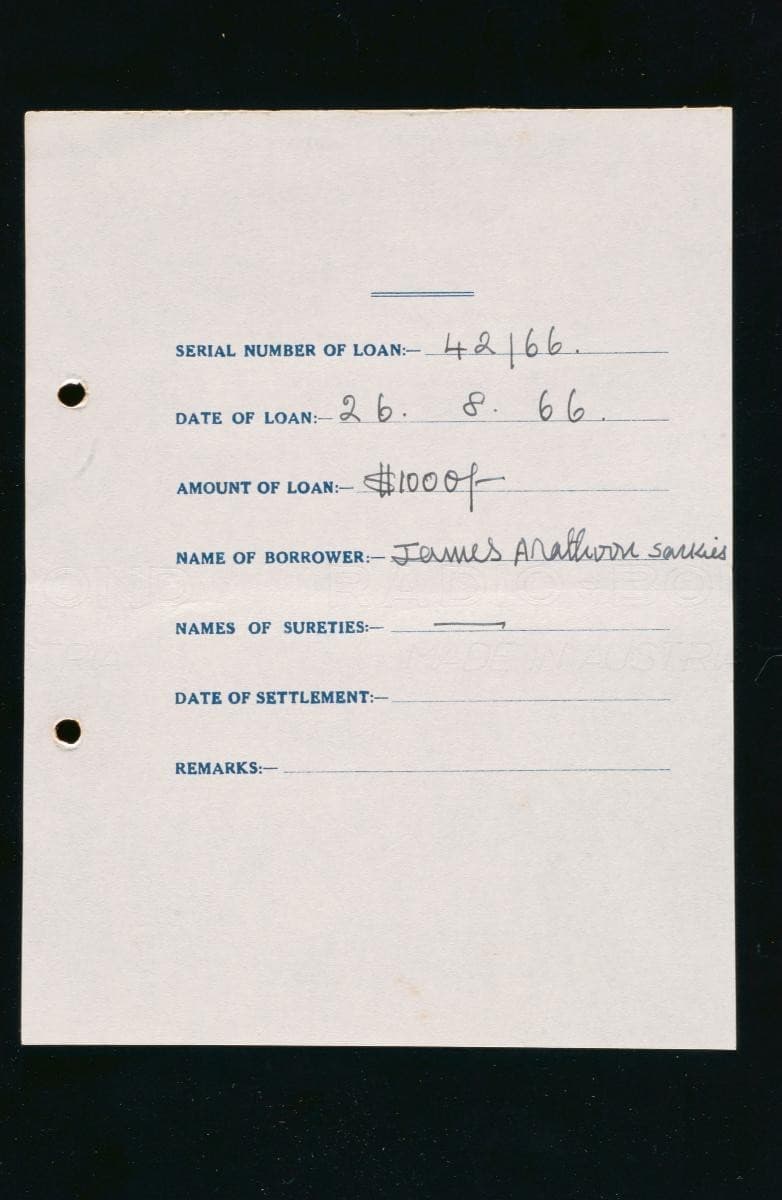 SERIAL NUMBER OF LOAN:— 42/66.
DATE OF LOAN:— 26. 8. 66.
AMOUNT OF LOAN:— $1000/-
NAME OF BORROWER:— James Arathoon Sarkies
NAMES OF SURETIES:— —
DATE OF SETTLEMENT:—
REMARKS:—
MADE IN AUSTRIA